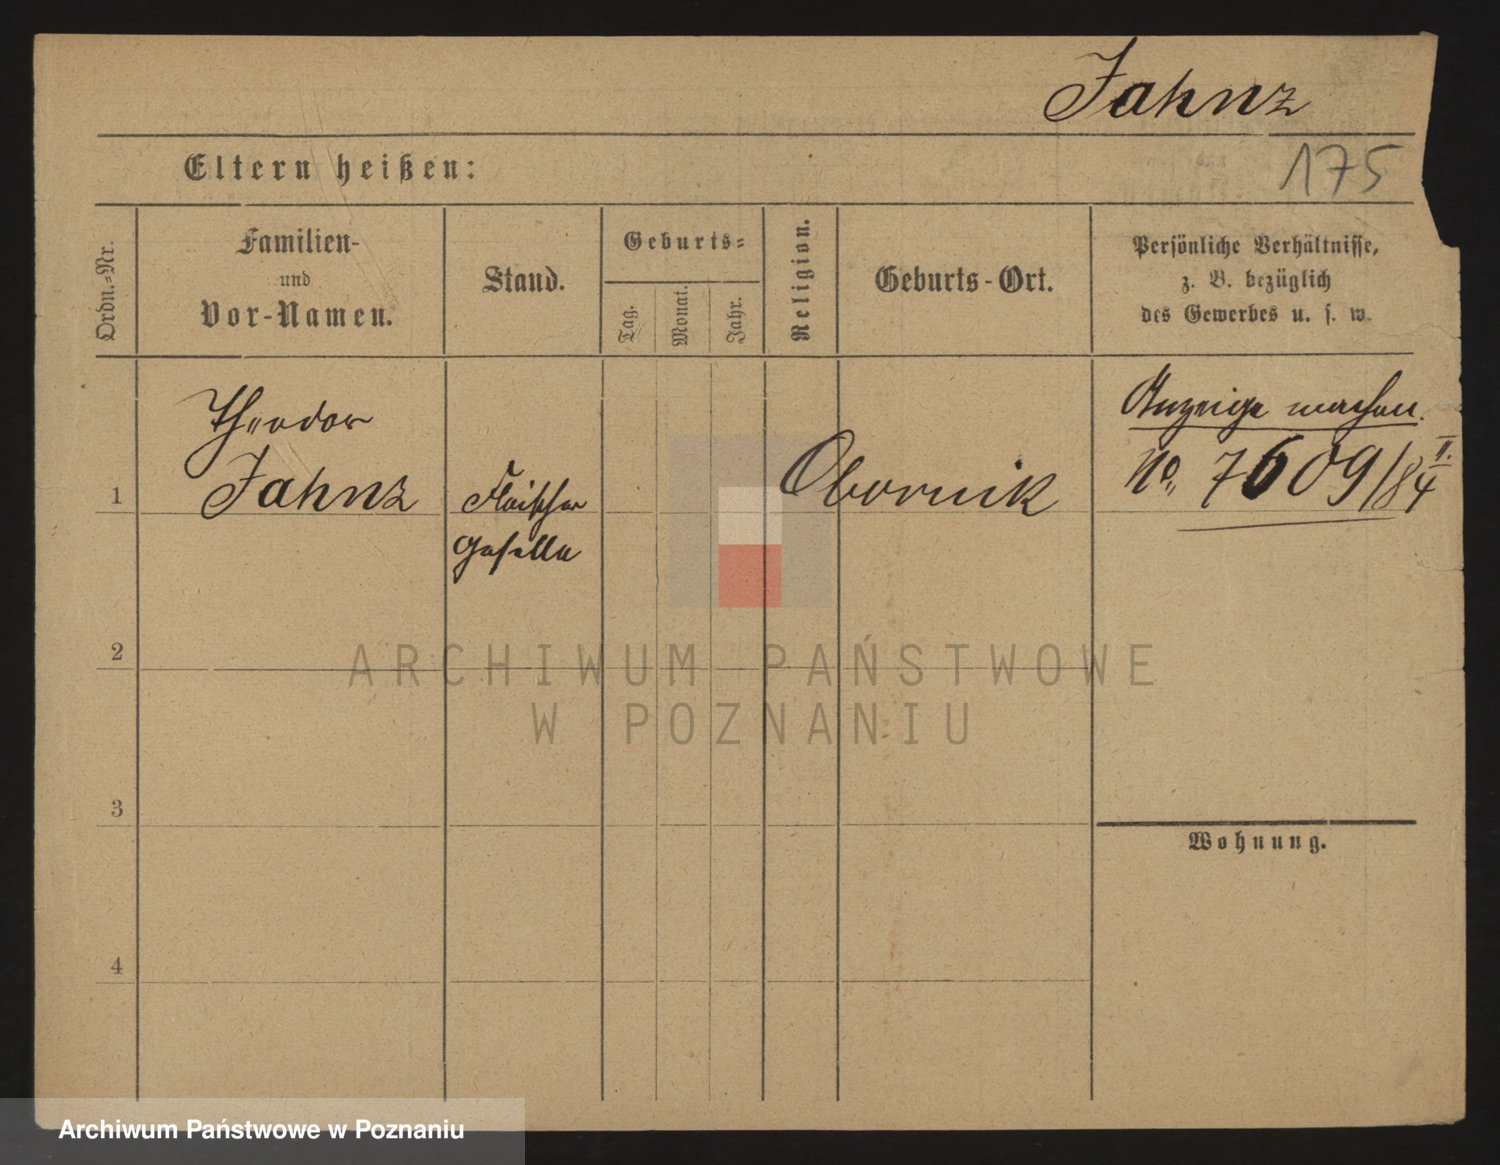 Jahnz
Eltern heißen:
175
Ordn.-Nr.
Familien-
und
Vor-Namen.
Stand.
Geburts-
Tag.
Monat.
Jahr.
Religion.
Geburts-Ort.
Persönliche Verhältnisse,
z. B. bezüglich
des Gewerbes u. s. w.
1
Theodor
Jahnz
Fleischer
Geselle
Obornik
Anzeige machen.
No. 7609/84 II.
2
3
4
Wohnung.
ARCHIWUM PAŃSTWOWE
W POZNANIU
Archiwum Państwowe w Poznaniu